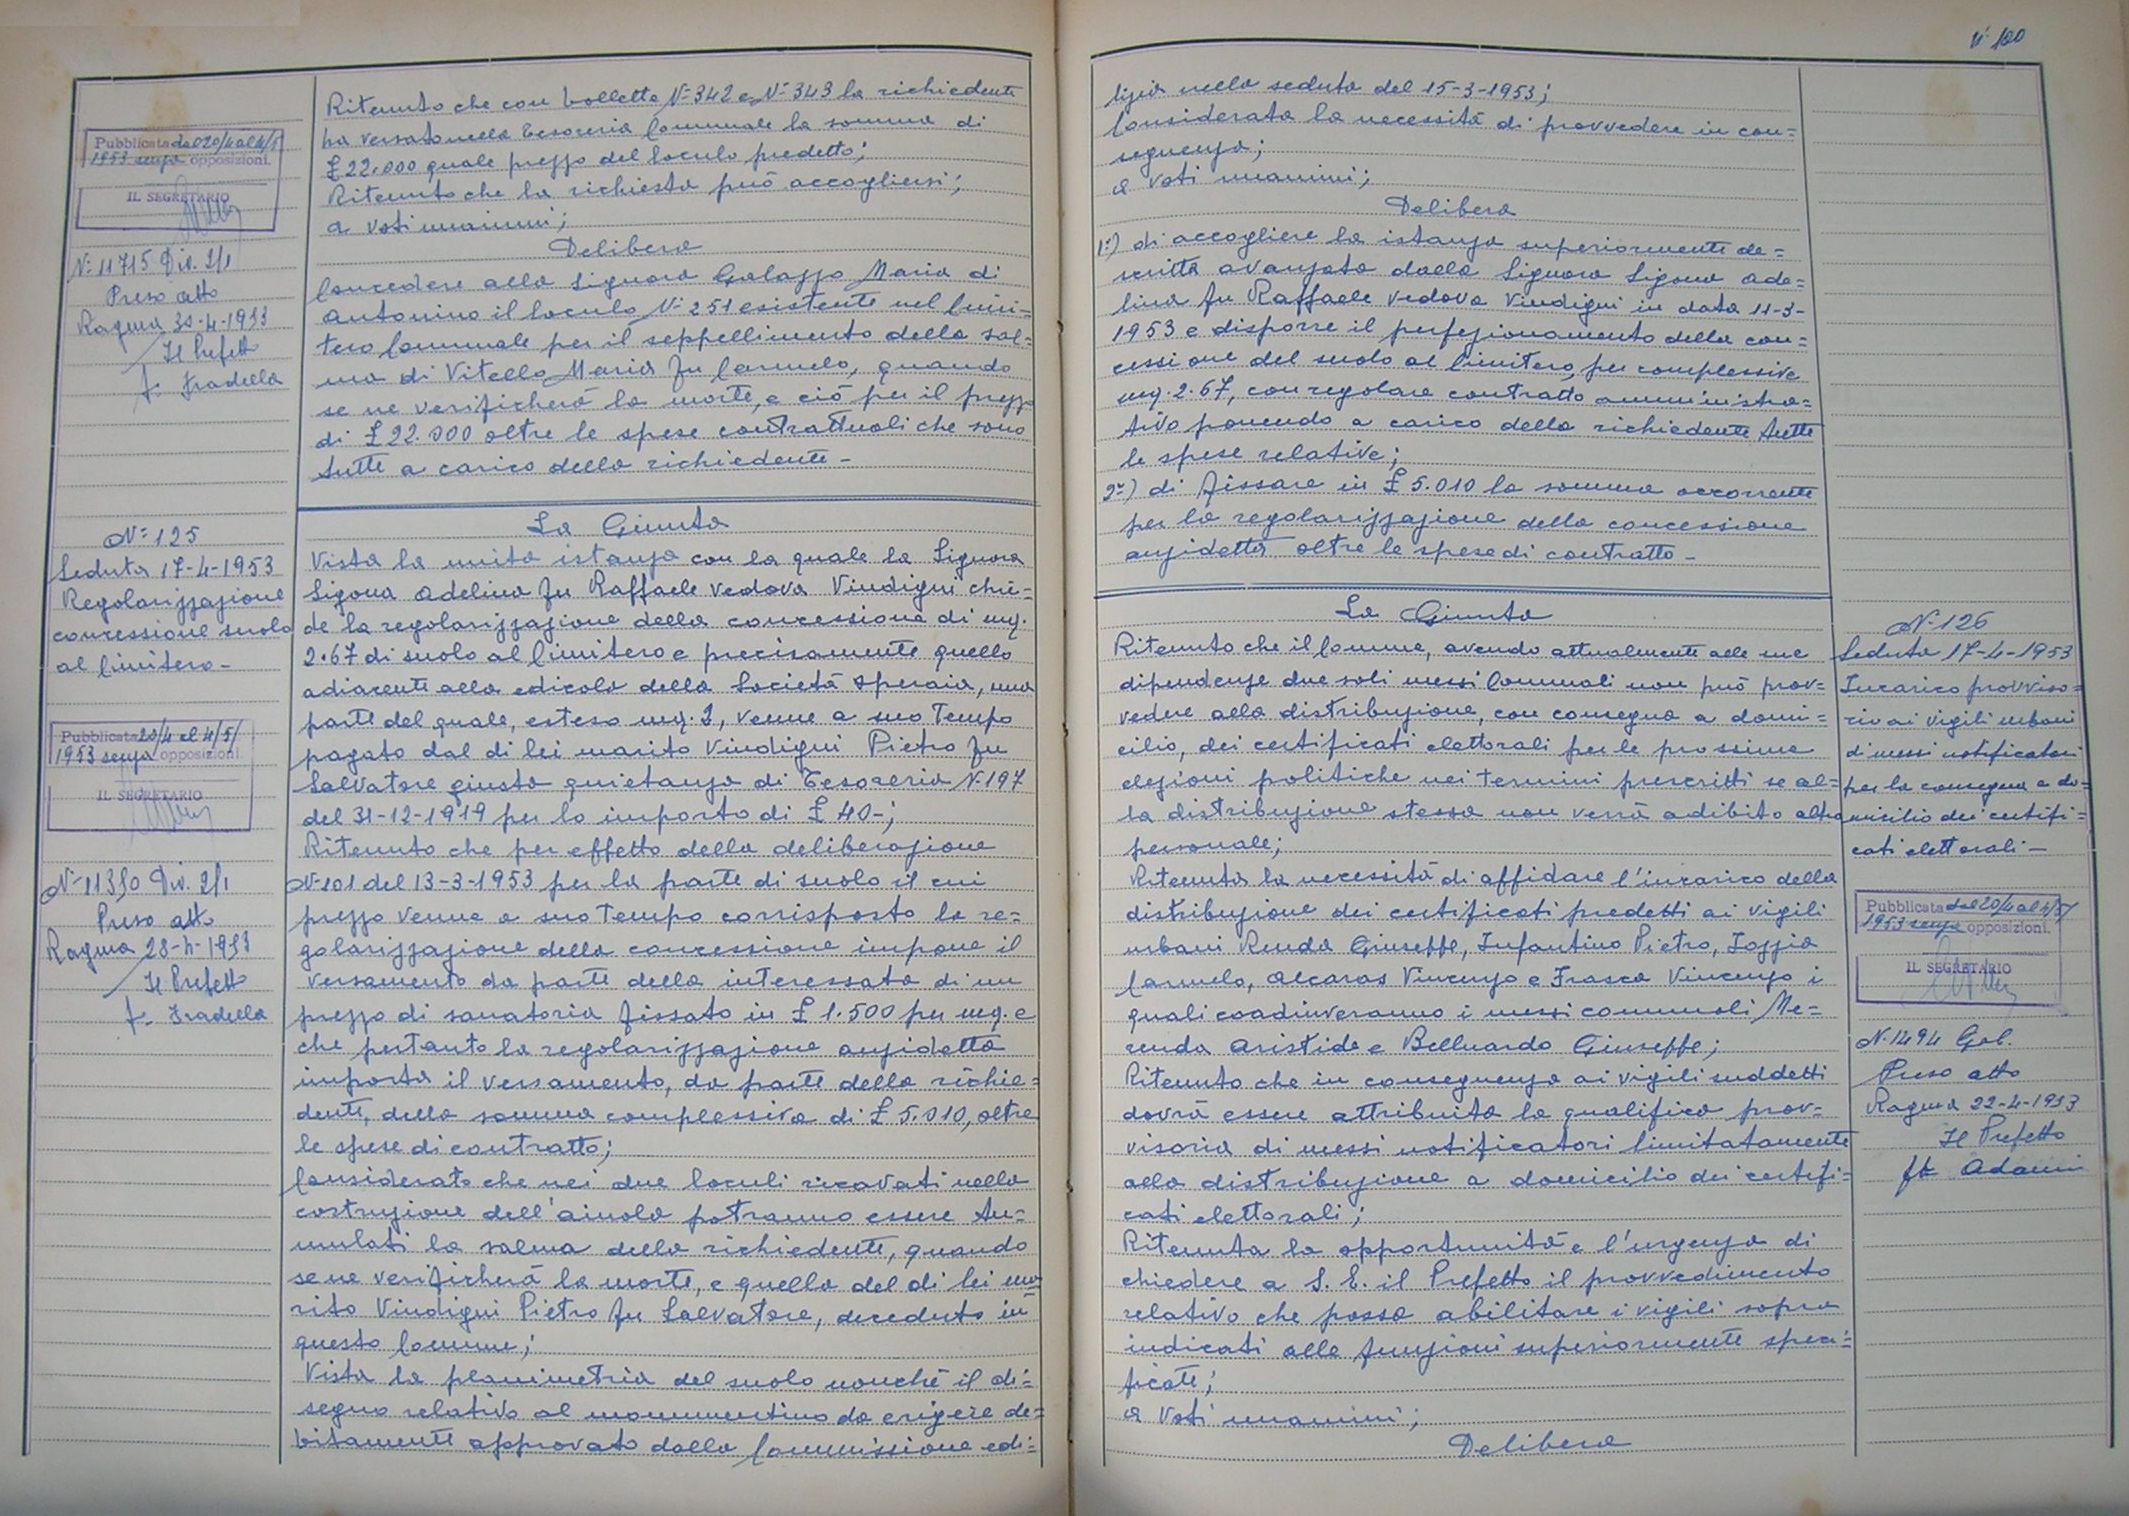 Pubblicata dal 20/4 al 4/5
1953 senza opposizioni.
IL SEGRETARIO
N: 11715 Div. 2/1
Preso atto
Ragusa 30-4-1953
Il Prefetto
f. Fradella
N: 125
Seduta 17-4-1953
Regolarizzazione
concessione suolo
al Cimitero -
Pubblicata 20/4 al 4/5/
1953 senza opposizioni
IL SEGRETARIO
Div. 2/1
Preso atto
Ragusa 28-4-1953
Il Prefetto
f. Fradella
Ritenuto che con bollette N: 342 e N: 343 la richiedente
ha versato nella Tesoreria Comunale la somma di
£ 22.000 quale prezzo del loculo predetto;
Ritenuto che la richiesta può accogliersi;
a voti unanimi;
Delibera
Concedere alla Signora Galazzo Maria di
Antonino il loculo N: 251 esistente nel Cimi=
tero Comunale per il seppellimento della sal=
ma di Vitello Maria fu Carmelo, quando
se ne verificherà la morte, e ciò per il prezzo
di £ 22.000 oltre le spese contrattuali che sono
tutte a carico della richiedente -
La Giunta
Vista la unita istanza con la quale la Signora
Sigona Adelina fu Raffaele vedova Vindigni chie=
de la regolarizzazione della concessione di mq.
2.67 di suolo al Cimitero e precisamente quello
adiacente alla edicola della Società Operaia, una
parte del quale, esteso mq. 2, venne a suo tempo
pagato dal di lei marito Vindigni Pietro fu
Salvatore giusta quietanza di Tesoreria N. 197
del 31-12-1919 per lo importo di £ 40-;
Ritenuto che per effetto della deliberazione
N: 101 del 13-3-1953 per la parte di suolo il cui
prezzo venne a suo tempo corrisposto la re=
golarizzazione della concessione impone il
versamento da parte della interessata di un
prezzo di sanatoria fissato in £ 1.500 per mq. e
che pertanto la regolarizzazione anzidetta
importa il versamento, da parte della richie=
dente, della somma complessiva di £ 5.010, oltre
le spese di contratto;
Considerato che nei due loculi ricavati nella
costruzione dell'aiuola potranno essere tu=
mulati la salma della richiedente, quando
se ne verificherà la morte, e quella del di lei ma
rito Vindigni Pietro fu Salvatore, deceduto in
questo Comune;
Vista la planimetria del suolo nonché il di=
segno relativo al monumentino da erigere de=
bitamente approvato dalla Commissione edi=
N: 100
lizia nella seduta del 15-3-1953;
Considerata la necessità di provvedere in con=
seguenza;
a voti unanimi;
Delibera
1:) di accogliere la istanza superiormente de=
scritta avanzata dalla Signora Sigona Ade=
lina fu Raffaele vedova Vindigni in data 11-3-
1953 e disporre il perfezionamento della con=
cessione del suolo al Cimitero, per complessive
mq. 2.67, con regolare contratto amministra=
tivo ponendo a carico della richiedente tutte
le spese relative;
2:) di fissare in £ 5.010 la somma occorrente
per la regolarizzazione della concessione
anzidetta oltre le spese di contratto -
La Giunta
Ritenuto che il Comune, avendo attualmente alle sue
dipendenze due soli messi Comunali non può prov=
vedere alla distribuzione, con consegna a domi=
cilio, dei certificati elettorali per le prossime
elezioni politiche nei termini prescritti se al=
la distribuzione stessa non verrà adibito altro
personale;
Ritenuta la necessità di affidare l'incarico della
distribuzione dei certificati predetti ai vigili
urbani Renda Giuseppe, Infantino Pietro, Ioppia
Carmelo, Alcaras Vincenzo e Frasca Vincenzo i
quali coadiuveranno i messi comunali Me=
renda Aristide e Belluardo Giuseppe;
Ritenuto che in conseguenza ai vigili suddetti
dovrà essere attribuita la qualifica prov=
visoria di messi notificatori limitatamente
alla distribuzione a domicilio dei certifi=
cati elettorali;
Ritenuta la opportunità e l'urgenza di
chiedere a S. E. il Prefetto il provvedimento
relativo che possa abilitare i vigili sopra
indicati alle funzioni superiormente speci=
ficate;
a voti unanimi;
Delibera
N: 126
Seduta 17-4-1953
Incarico provviso=
rio ai vigili urbani
di messi notificatori
per la consegna a do=
micilio dei certifi=
cati elettorali -
Pubblicata dal 20/4 al 4/5/
1953 senza opposizioni.
IL SEGRETARIO
N. 1494 Gab.
Preso atto
Ragusa 22-4-1953
Il Prefetto
ft Adami